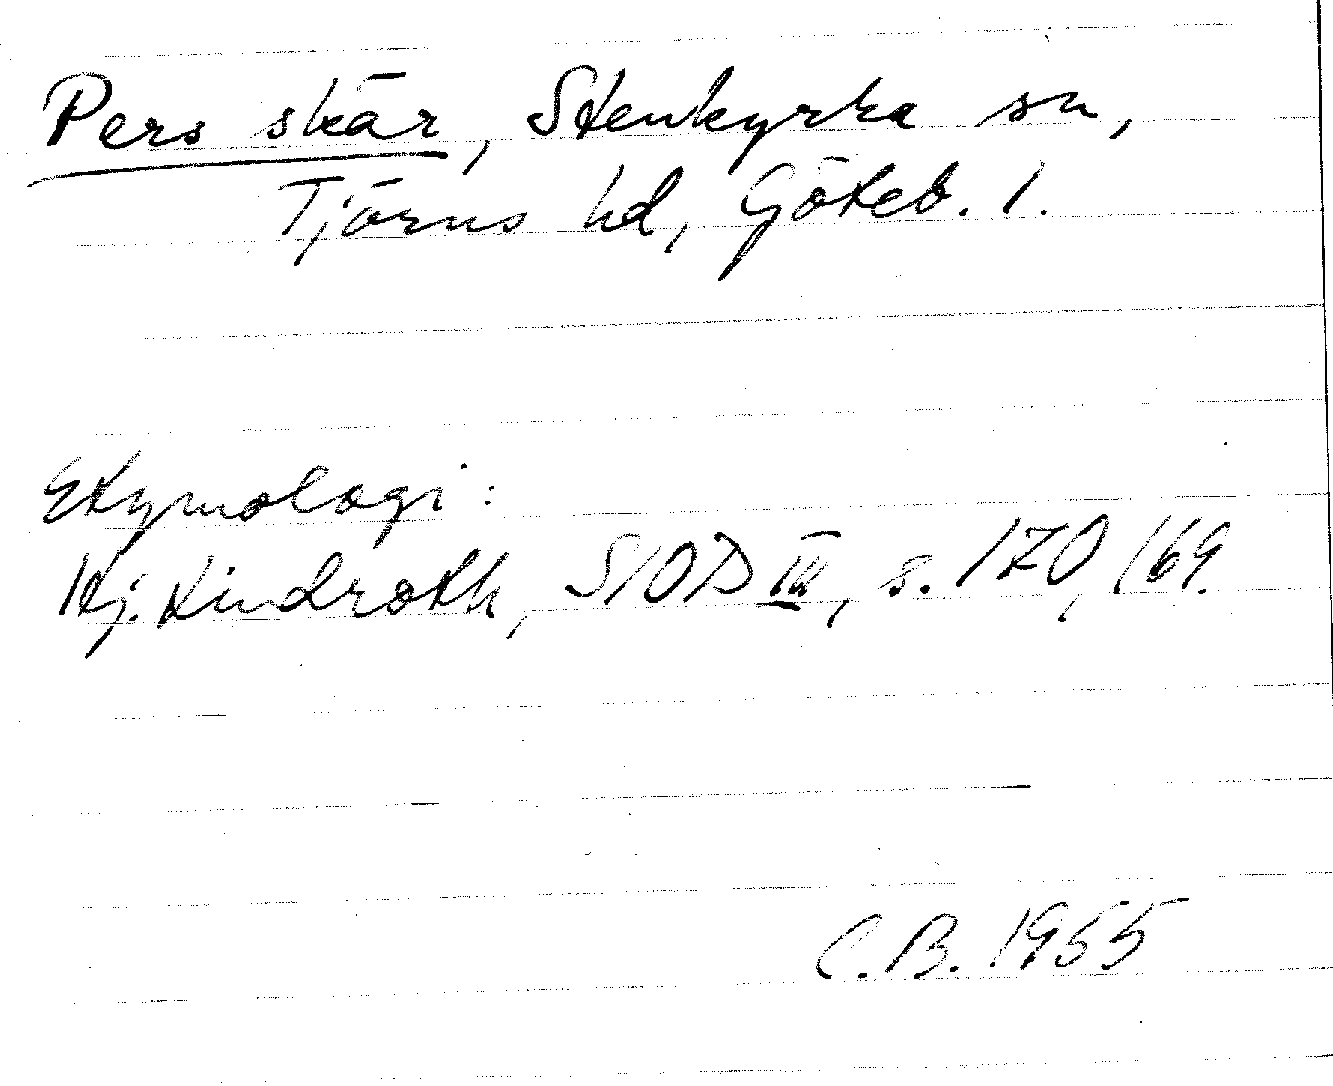 Pers skär, Stenkyrka sn,
Tjörns hd, Göteb. l.
Etymologi:
Hj. Lindroth, SIOD III, s. 170, 169.
C.B. 1955